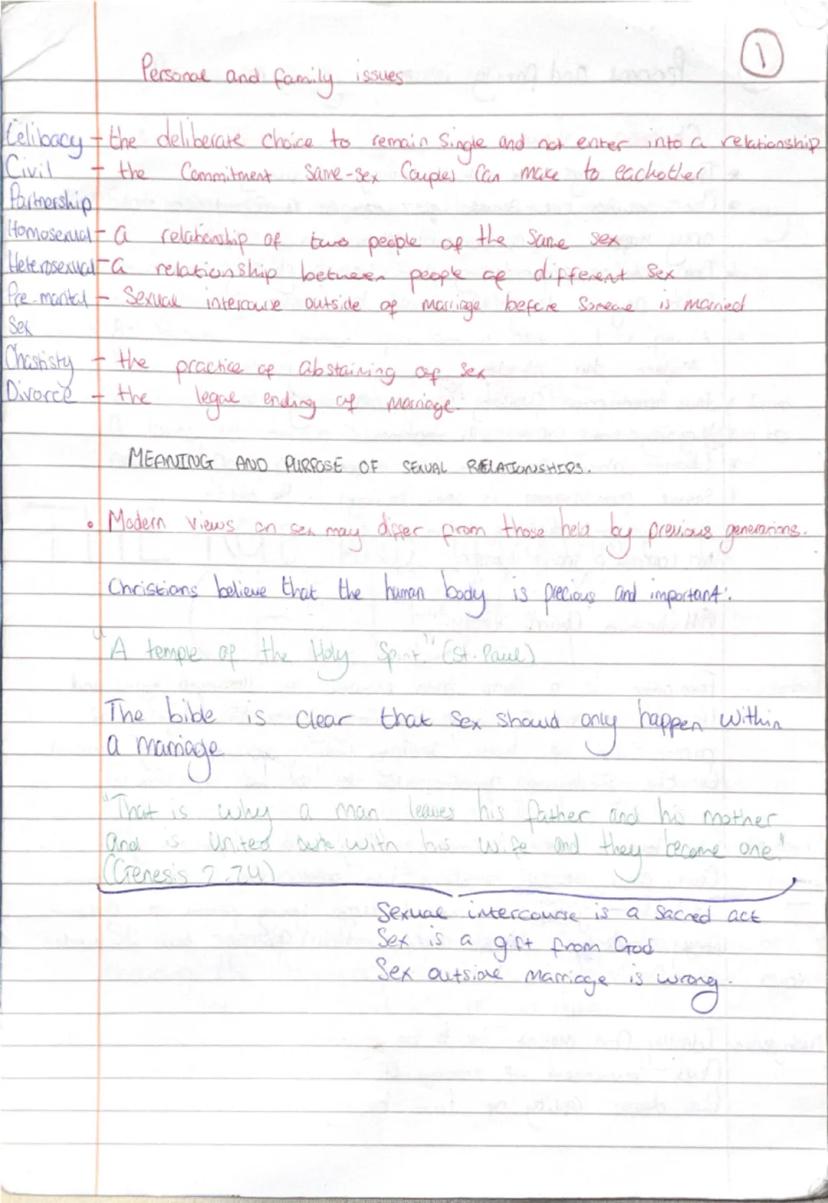 1
Personal and family issues
Celibacy - the deliberate choice to remain single and not enter into a relationship
Civil - the Commitment same-sex Couples Can make to eachother
Partnership
Homosexual - a relationship of two people of the same sex
Heterosexual - a relationship between people of different sex
Pre-marital - Sexual intercourse outside of marriage before someone is married
Sex
Chastisty - the practice of abstaining of sex
Divorce - the legal ending of marriage.
MEANING AND PURPOSE OF SEXUAL RELATIONSHIPS.
• Modern views on sex may differ from those held by previous generations.
Christians believe that the human body is precious and important.
"A temple of the Holy Spirit" (St. Paul)
The bible is clear that sex should only happen within
a marriage
"That is why a man leaves his father and his mother
and is united with his wife and they become one"
(Genesis 2.24)
Sexual intercourse is a sacred act
Sex is a gift from God
Sex outside marriage is wrong.